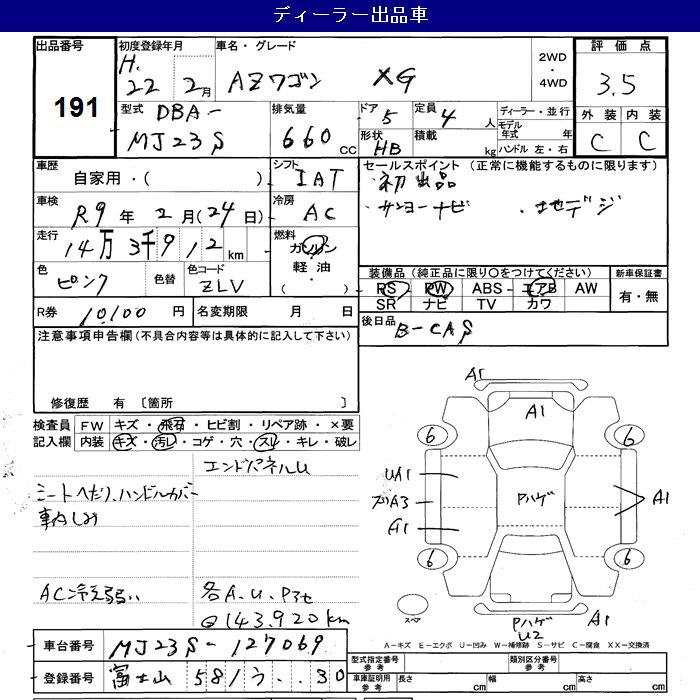 ディーラー出品車
出品番号
191
初度登録年月
H.
22 2月
車名・グレード
AZワゴン XG
2WD
・
4WD
評価点
3.5
外装 内装
C C
型式 DBA-
MJ23S
排気量
660cc
ドア 5
形状 HB
定員 4人
積載 kg
ディーラー・並行
モデル年式 年
ハンドル 左・右
車歴
自家用・( )
シフト
IAT
車検
R9年2月(24日)
冷房
AC
走行
14万3千912km
燃料
ガソリン
・
軽油
・
( )
色
ピンク
色替
色コード
ZLV
R券 10,100円
名変期限 月 日
セールスポイント(正常に機能するものに限ります)
・初出品
・サンヨーナビ ・地デジ
装備品(純正品に限り〇をつけてください)
PS PW ABS エアB AW
SR ナビ TV カワ
新車保証書
有・無
後日品
B-CAS
注意事項申告欄(不具合内容等は具体的に記入して下さい)
修復歴 有〔箇所 〕
検査員記入欄
FW キズ・飛石・ヒビ割・リペア跡・×要
内装 キズ・汚レ・コゲ・穴・スレ・キレ・破レ
エンドパネルU
シートへたり、ハンドルカバー
車内しみ
AC冷え弱い
各A.U.Pキセ
@143,920km
A1
A1
6
6
UA1
A1
Pハゲ
A1
6
6
スペア
Pハゲ
U2
A1
A-キズ E-エクボ U-凹み W-補修跡 S-サビ C-腐食 XX-交換済
車台番号 MJ23S-127069
登録番号 富士山 581う ‥30
型式指定番号
参考
類別区分番号
参考
車庫証明用
参考
長さ cm
幅 cm
高さ cm